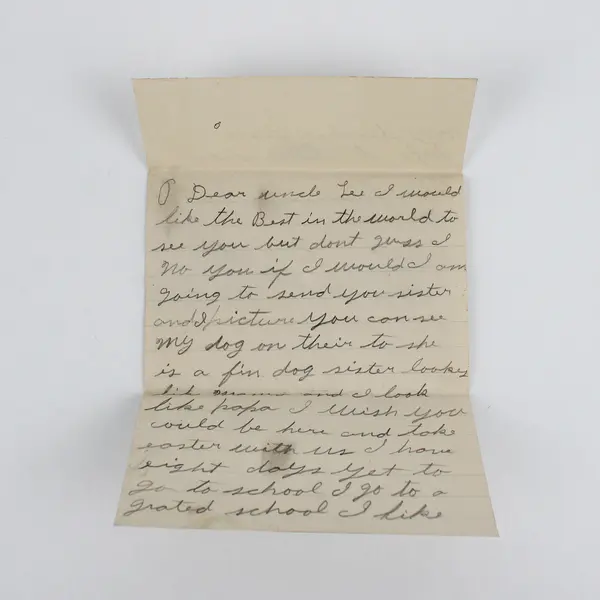 Dear uncle Lee I would
like the Best in the world to
see you but dont guss I
No you if I would I am
going to send you sister
and I picture you can see
My dog on their to she
is a fin dog sister lookes
lik mama and I look
like papa I wish you
could be here and take
easter with us I have
eight days yet to
go to school I go to a
grated school I like